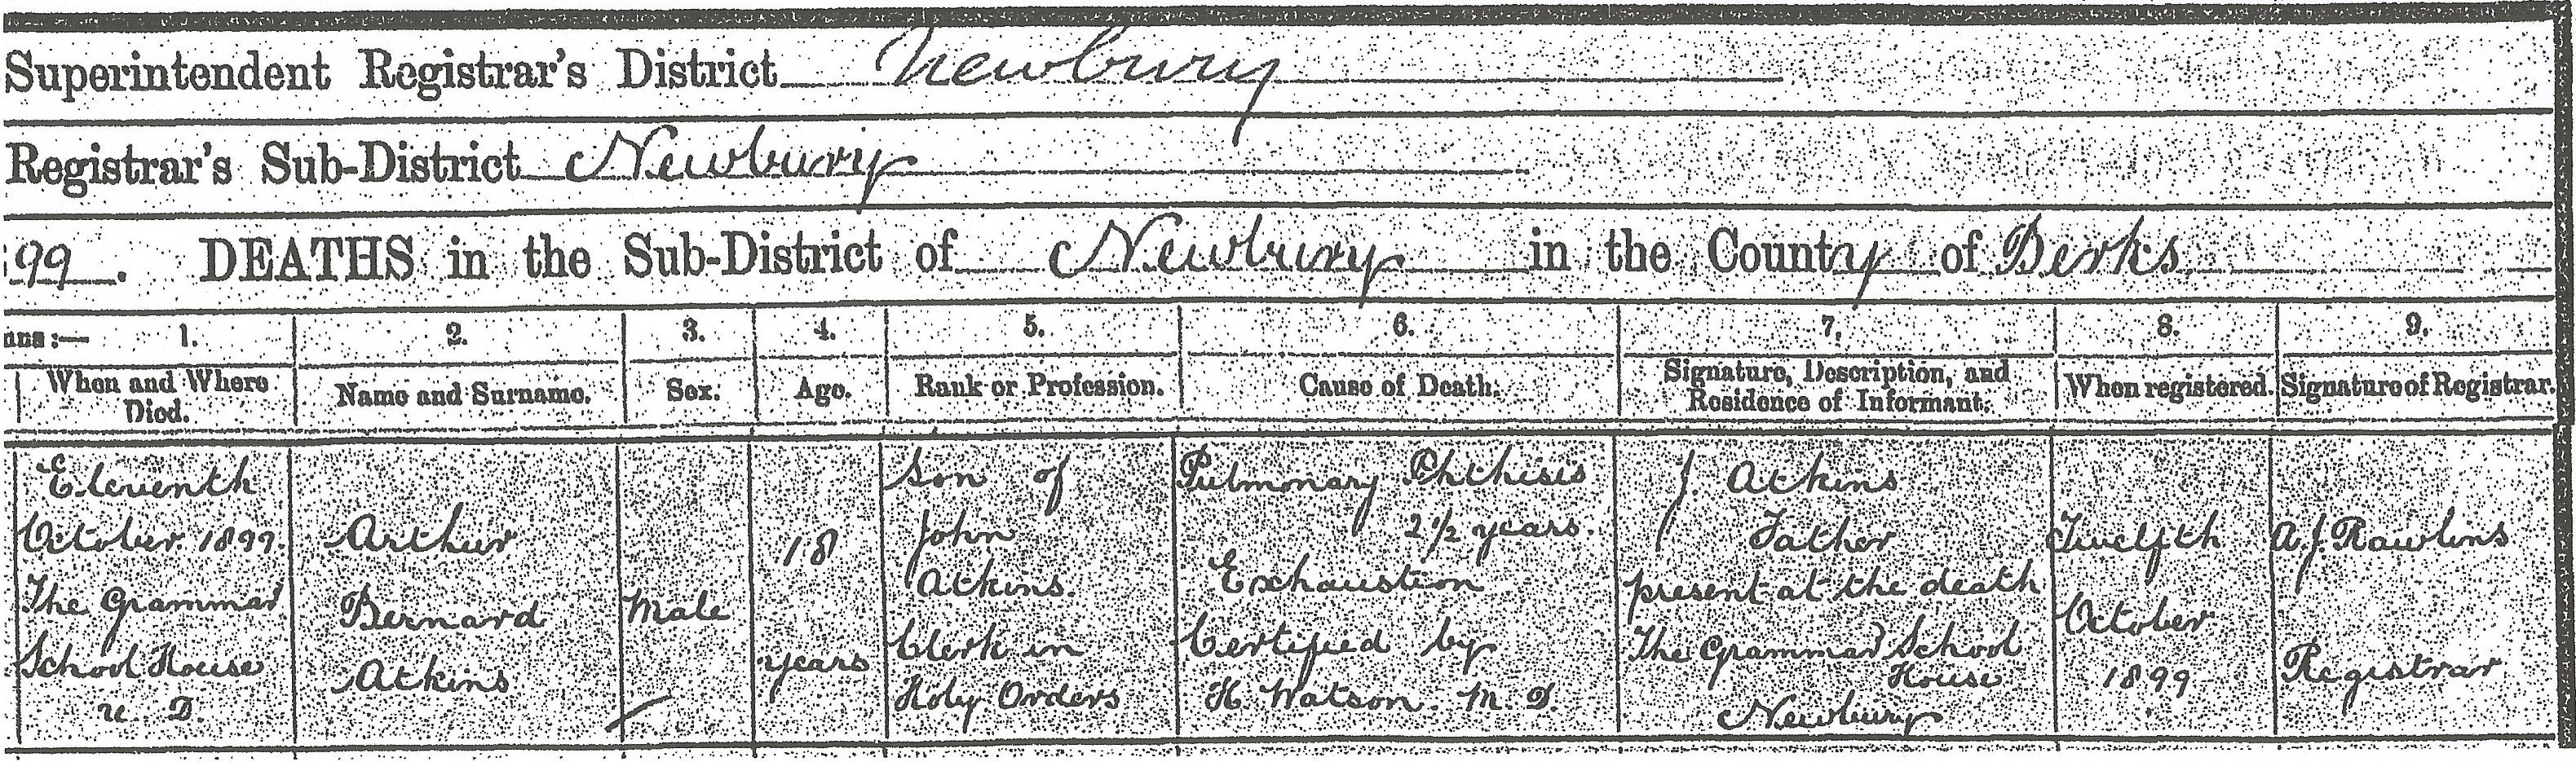 Superintendent Registrar's District Newbury
Registrar's Sub-District Newbury
99. DEATHS in the Sub-District of Newbury in the County of Berks
:— 1. 2. 3. 4. 5. 6. 7. 8. 9.
When and Where Died.
Name and Surname.
Sex.
Age.
Rank or Profession.
Cause of Death.
Signature, Description, and
Residence of Informant.
When registered.
Signature of Registrar.
Eleventh
October 1899.
The Grammar
School House
U. D.
Arthur
Bernard
Atkins
Male
18
years
Son of
John
Atkins.
Clerk in
Holy Orders
Pulmonary Phthisis
2½ years.
Exhaustion
Certified by
H. Watson. M. D.
J. Atkins
Father
present at the death
The Grammar School
House
Newbury
Twelfth
October
1899
A. J. Rawlins
Registrar